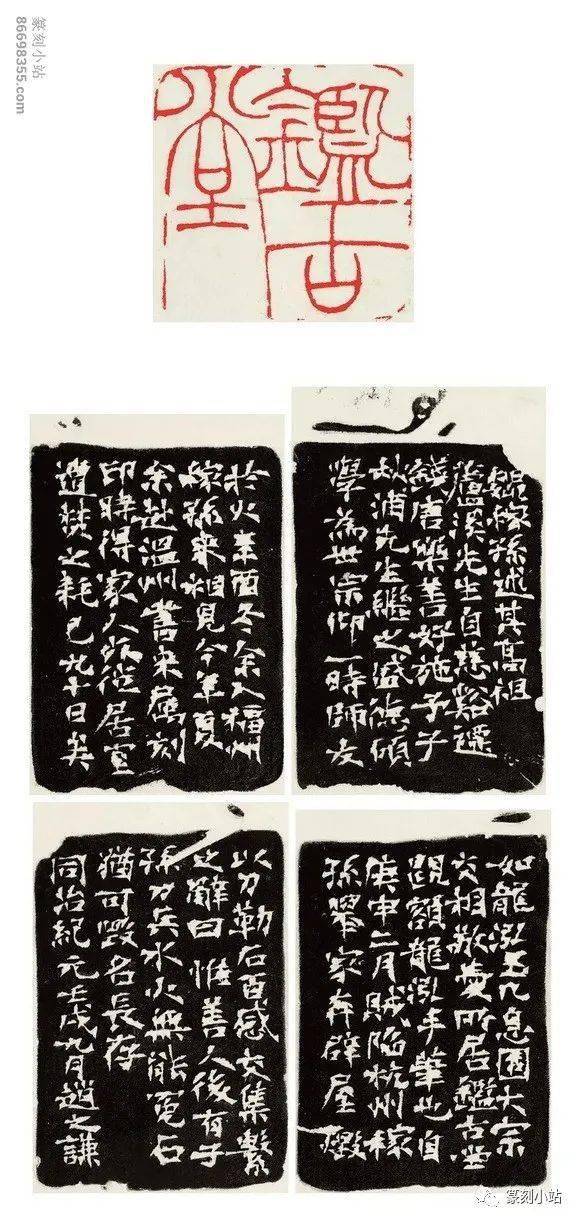 篆刻小站
86698355.com
鑑古
堂
魏稼孫述其高祖
蘆溪先生自慈谿遷
錢唐樂善好施予子
秋浦先生繼之盛德碩
學為世宗仰一時師友
如龍泓玉几息園大宗
交相敬愛所居鑑古堂
題額龍泓手筆也自
庚申二月賊陷杭州稼
孫舉家奔辟屋燬
於火辛酉冬余入福州
稼孫來相見今年夏
余赴溫州書來屬刻
印時得家人流徙居室
遭焚之耗已九十日矣
以刀勒石百感交集繫
之辭曰惟善人後有子
孫刀兵水火無能冤石
猶可毀名長存
同治紀元壬戌九月趙之謙
篆刻小站